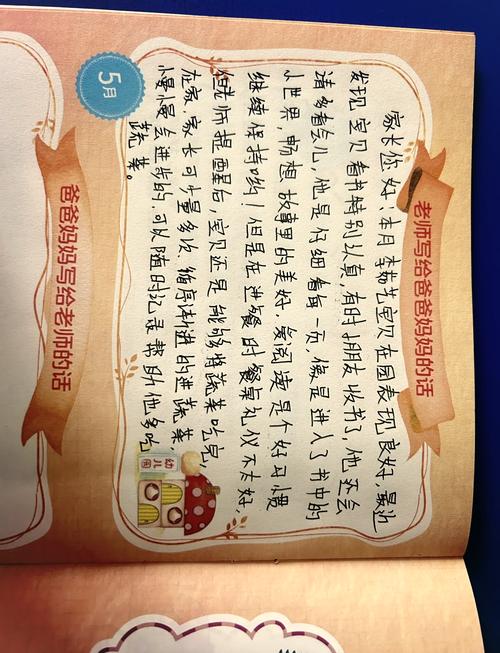 5月
老师写给爸爸妈妈的话
家长你好,本月李 艺宝贝在园表现良好,最近
发现宝贝看书特别认真,有时小朋友收书了,他还会
请多看会儿,他是仔细看每一页,像是进入了书中的
小世界,畅想故事里的美好,爱阅读是个好习惯
继续保持哟!但是在进餐时餐桌礼仪不太好,
但老师提醒后,宝贝还是能够将蔬菜吃完,
在家,家长可少量多次、循序渐进的进蔬菜,
慢慢会进步的,可以随时记录帮助他多吃
蔬菜。
幼儿园
爸爸妈妈写给老师的话